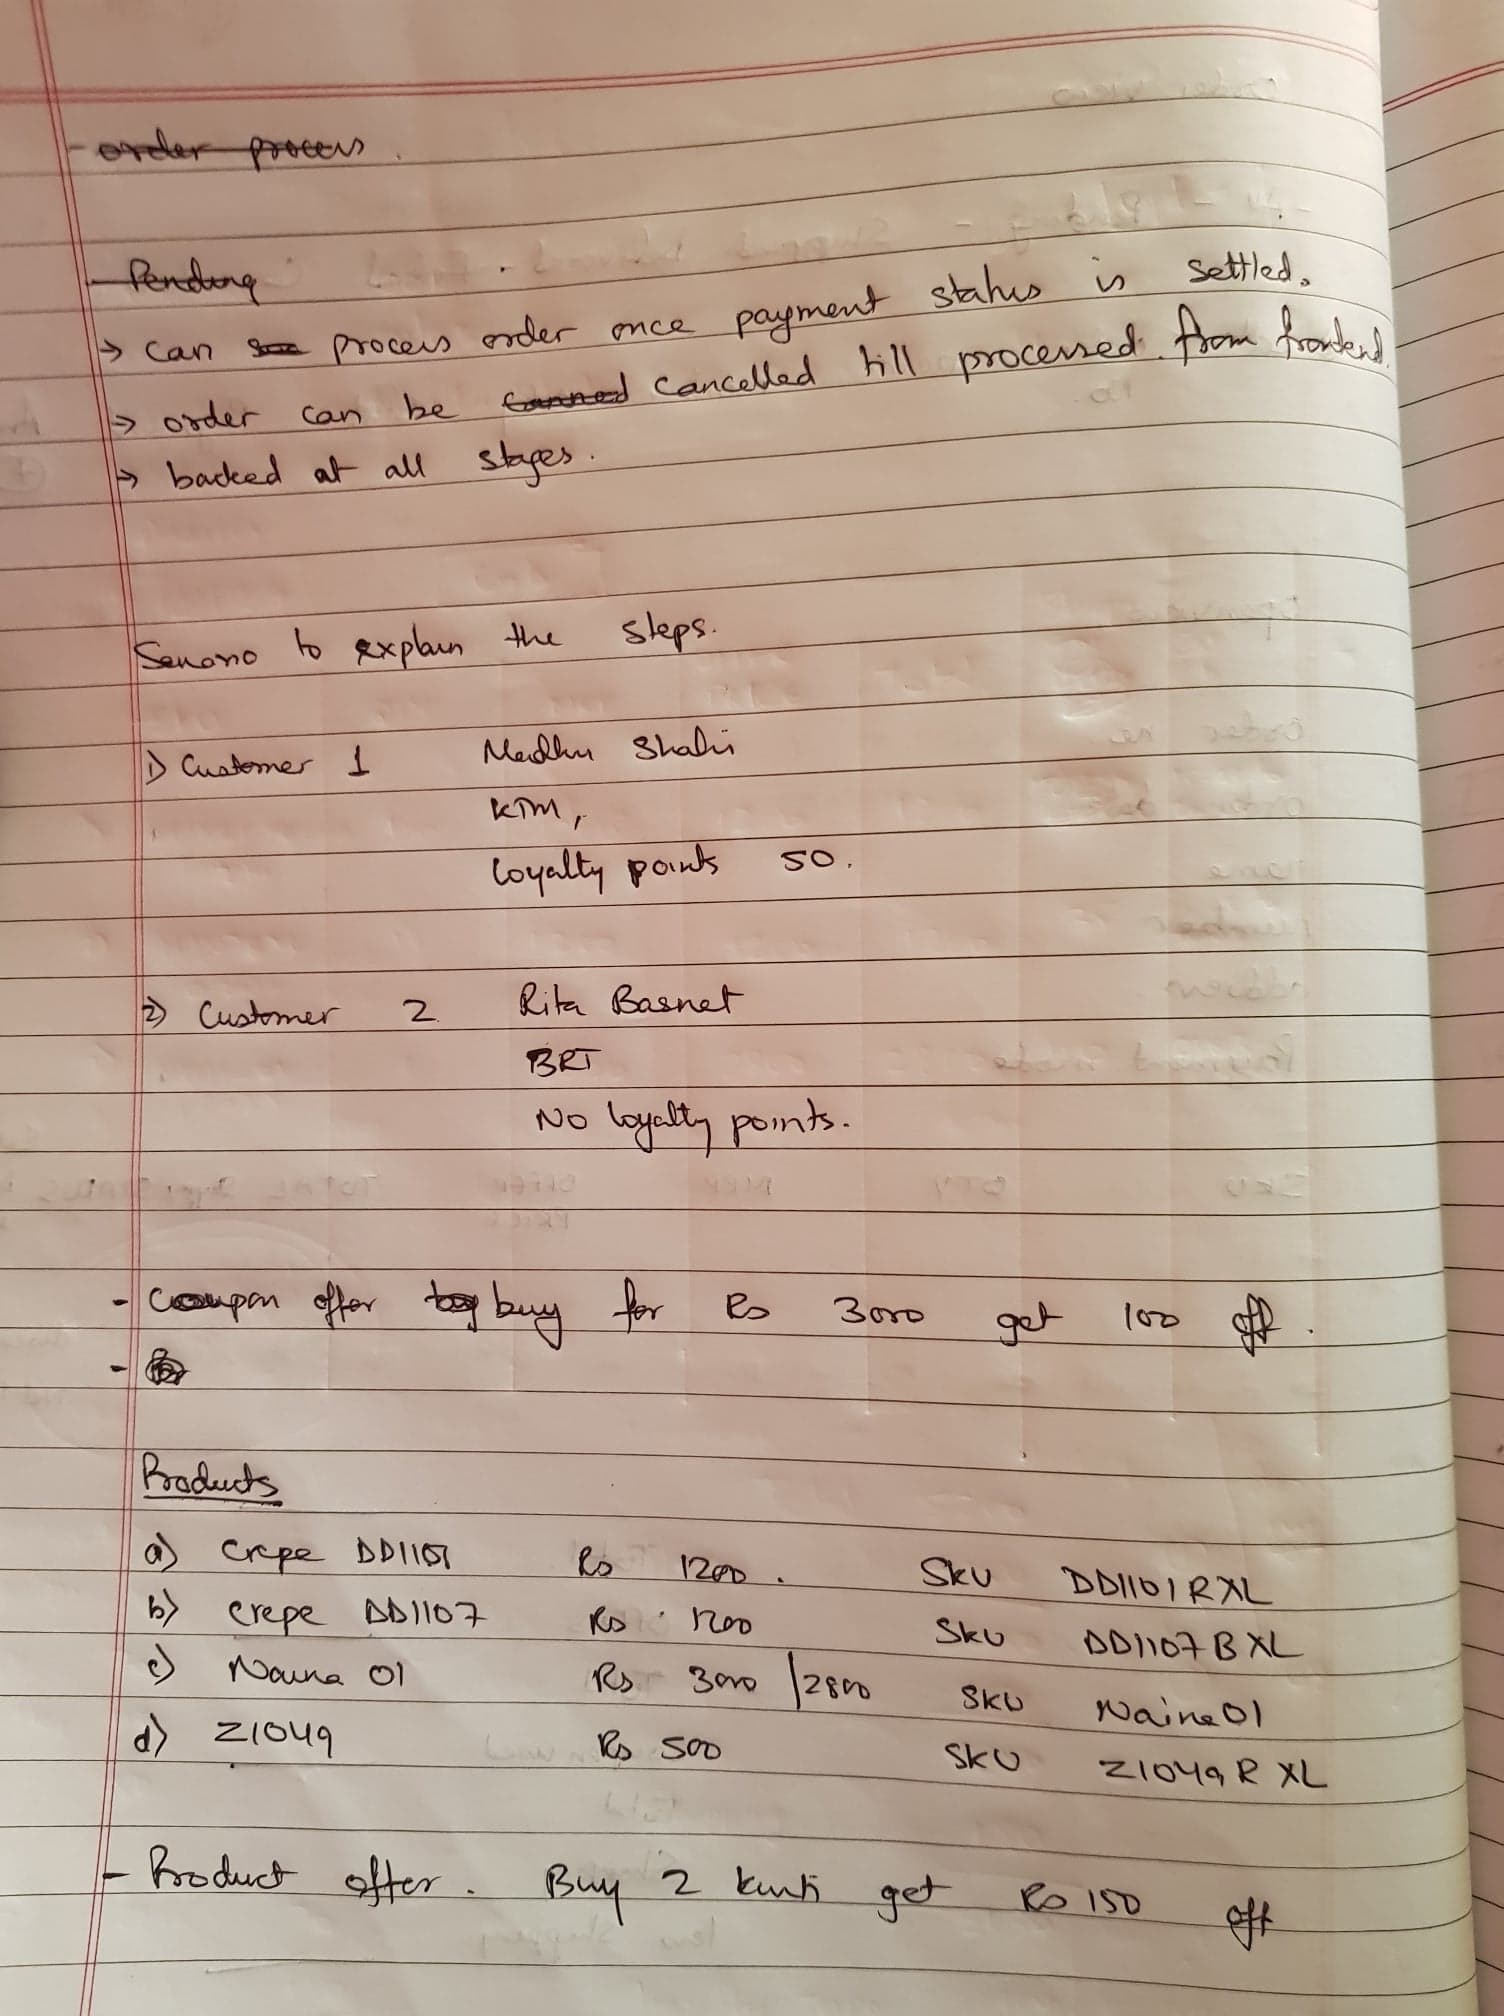 - order process.
- Pending
→ can process order once payment status is settled.
→ order can be canned cancelled till processed. from frontend.
→ backed at all stages.
Senario to explain the steps.
1) Customer 1 Madhu Shahi
KTM,
loyalty points 50.
2) Customer 2 Rita Basnet
BRT
No loyalty points.
- Coupon offer buy for Rs 3000 get 100 off.
-
Products
a) Crepe DD1101 Rs 1200. SKU DD1101RXL
b) crepe DD1107 Rs 1200 SKU DD1107BXL
c) Naina 01 Rs 3000/2800 SKU Naina01
d) Z1049 Rs 500 SKU Z1049RXL
- Product offer. Buy 2 kurti get Rs 150 off